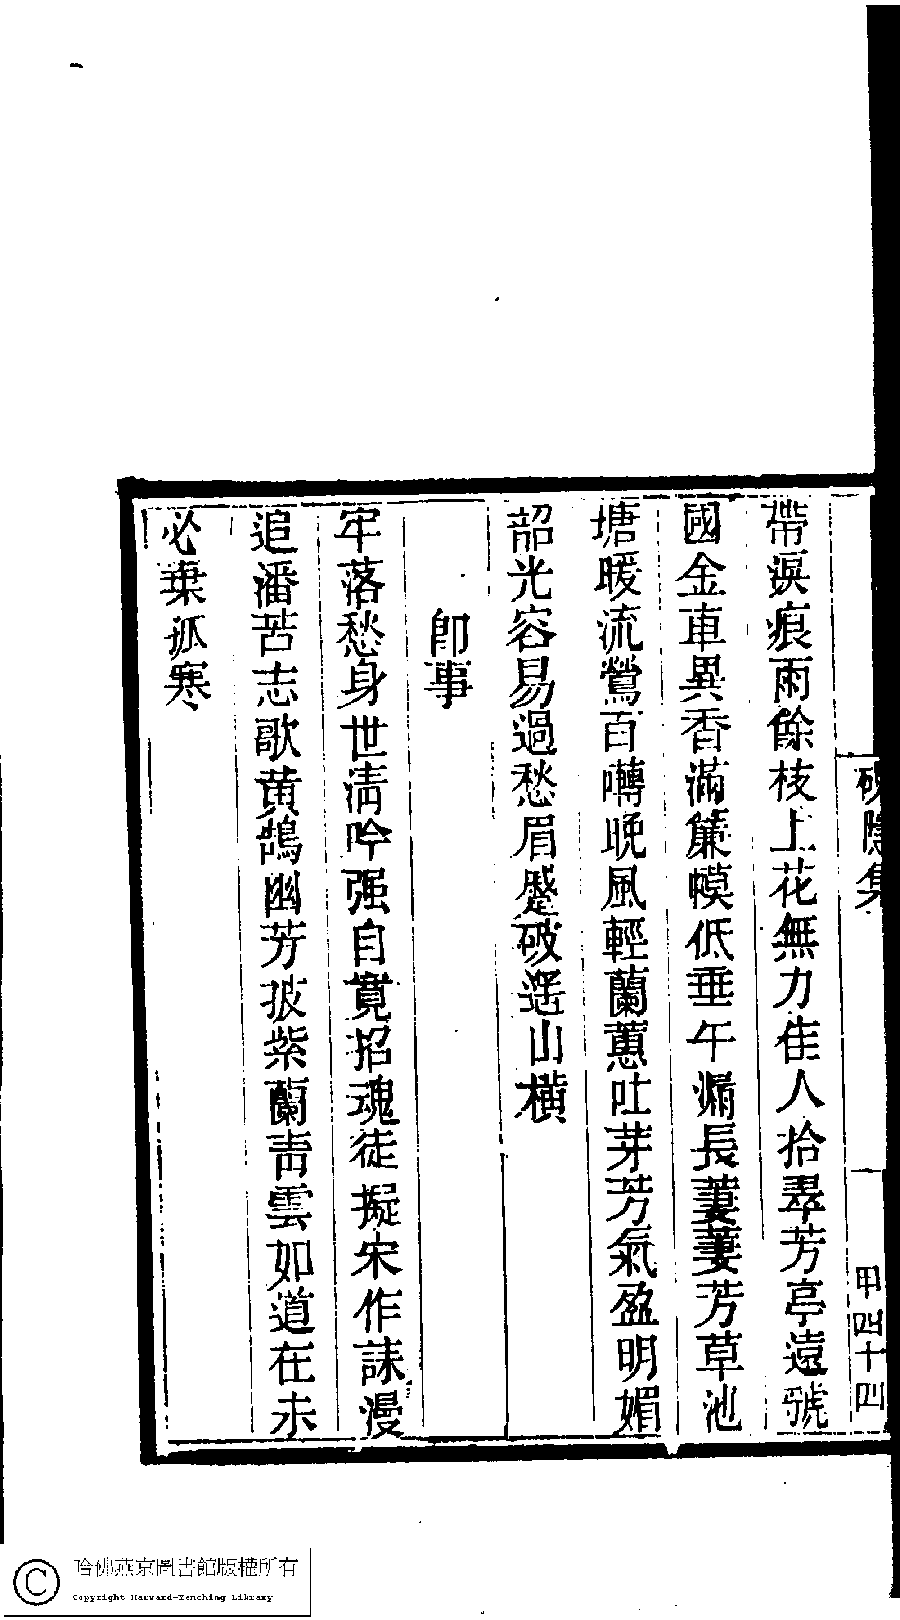 帶淚痕雨餘枝上花無力佳人拾翠芳亭遠號
國金車異香滿簾幙低垂午漏長萋萋芳草池
塘暖流鶯百囀晚風輕蘭蕙吐芽芳氣盈明媚
韶光容易過愁眉蹙破遥山橫
卽事
牢落愁身世淸吟强自寬招魂徒擬宋作誄漫
追潘苦志歌黃鵠幽芳披紫蘭靑雲如道在未
必棄孤寒
硯隱集
甲四十四
哈佛燕京圖書館版權所有
Copyright Harvard-Yenching Library